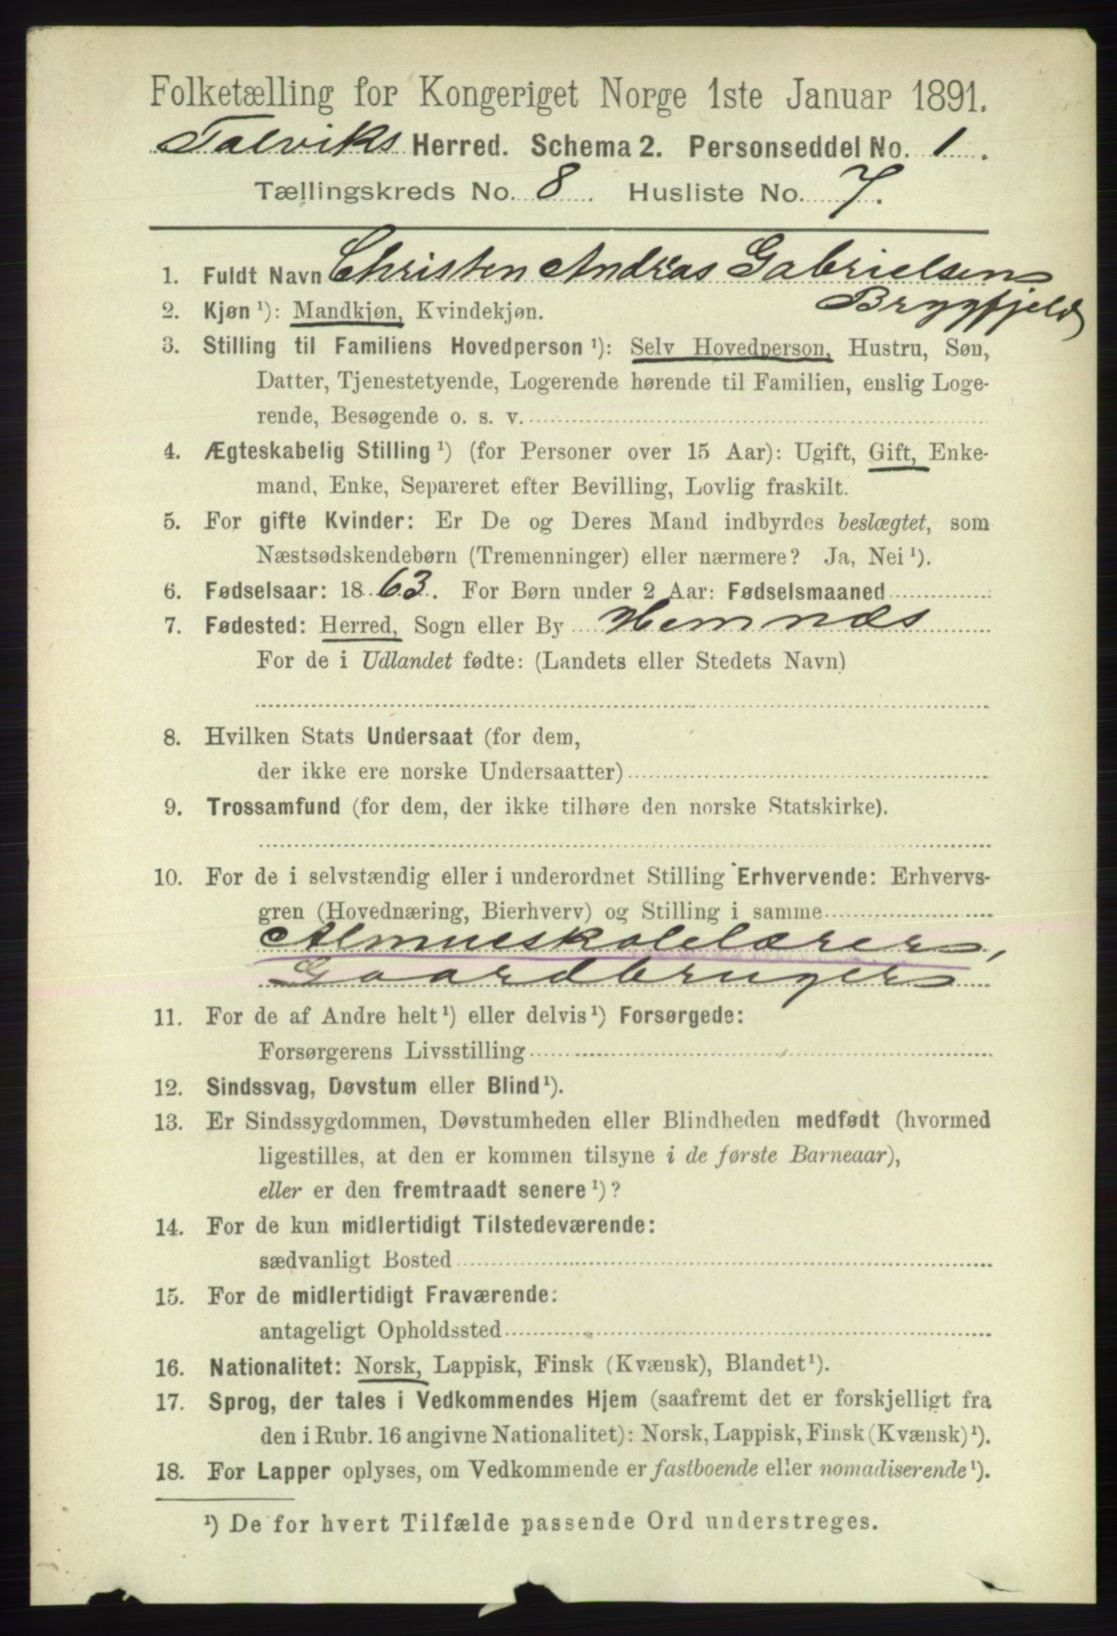 Folketælling for Kongeriget Norge 1ste Januar 1891.
Talviks Herred. Schema 2. Personseddel No. 1.
Tællingskreds No. 8. Husliste No. 7.
1. Fuldt Navn Christen Andras Gabrielsen
Brygfjeld
2. Kjøn ¹): Mandkjøn, Kvindekjøn.
3. Stilling til Familiens Hovedperson ¹): Selv Hovedperson, Hustru, Søn,
Datter, Tjenestetyende, Logerende hørende til Familien, enslig Loge-
rende, Besøgende o. s. v.
4. Ægteskabelig Stilling ¹) (for Personer over 15 Aar): Ugift, Gift, Enke-
mand, Enke, Separeret efter Bevilling, Lovlig fraskilt.
5. For gifte Kvinder: Er De og Deres Mand indbyrdes beslægtet, som
Næstsødskendebørn (Tremenninger) eller nærmere? Ja, Nei ¹).
6. Fødselsaar: 1863. For Børn under 2 Aar: Fødselsmaaned
7. Fødested: Herred, Sogn eller By Hemnæs
For de i Udlandet fødte: (Landets eller Stedets Navn)
8. Hvilken Stats Undersaat (for dem,
der ikke ere norske Undersaatter)
9. Trossamfund (for dem, der ikke tilhøre den norske Statskirke).
10. For de i selvstændig eller i underordnet Stilling Erhvervende: Erhvervs-
gren (Hovednæring, Bierhverv) og Stilling i samme
Almueskolelærer,
Gaardbruger
11. For de af Andre helt ¹) eller delvis ¹) Forsørgede:
Forsørgerens Livsstilling
12. Sindssvag, Døvstum eller Blind ¹).
13. Er Sindssygdommen, Døvstumheden eller Blindheden medfødt (hvormed
ligestilles, at den er kommen tilsyne i de første Barneaar),
eller er den fremtraadt senere ¹)?
14. For de kun midlertidigt Tilstedeværende:
sædvanligt Bosted
15. For de midlertidigt Fraværende:
antageligt Opholdssted
16. Nationalitet: Norsk, Lappisk, Finsk (Kvænsk), Blandet ¹).
17. Sprog, der tales i Vedkommendes Hjem (saafremt det er forskjelligt fra
den i Rubr. 16 angivne Nationalitet): Norsk, Lappisk, Finsk (Kvænsk) ¹).
18. For Lapper oplyses, om Vedkommende er fastboende eller nomadiserende ¹).
¹) De for hvert Tilfælde passende Ord understreges.